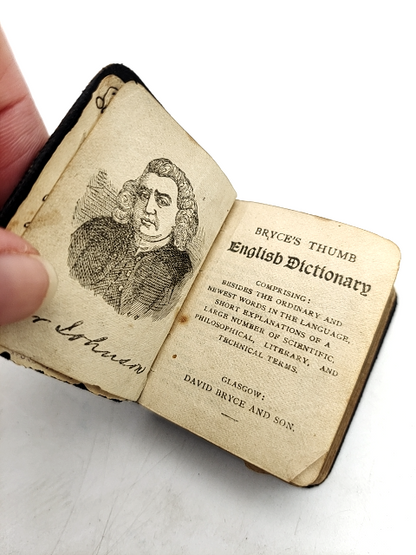 Johnson
BRYCE'S THUMB
English Dictionary
COMPRISING:
BESIDES THE ORDINARY AND
NEWEST WORDS IN THE LANGUAGE,
SHORT EXPLANATIONS OF A
LARGE NUMBER OF SCIENTIFIC,
PHILOSOPHICAL, LITERARY, AND
TECHNICAL TERMS.
GLASGOW:
DAVID BRYCE AND SON.